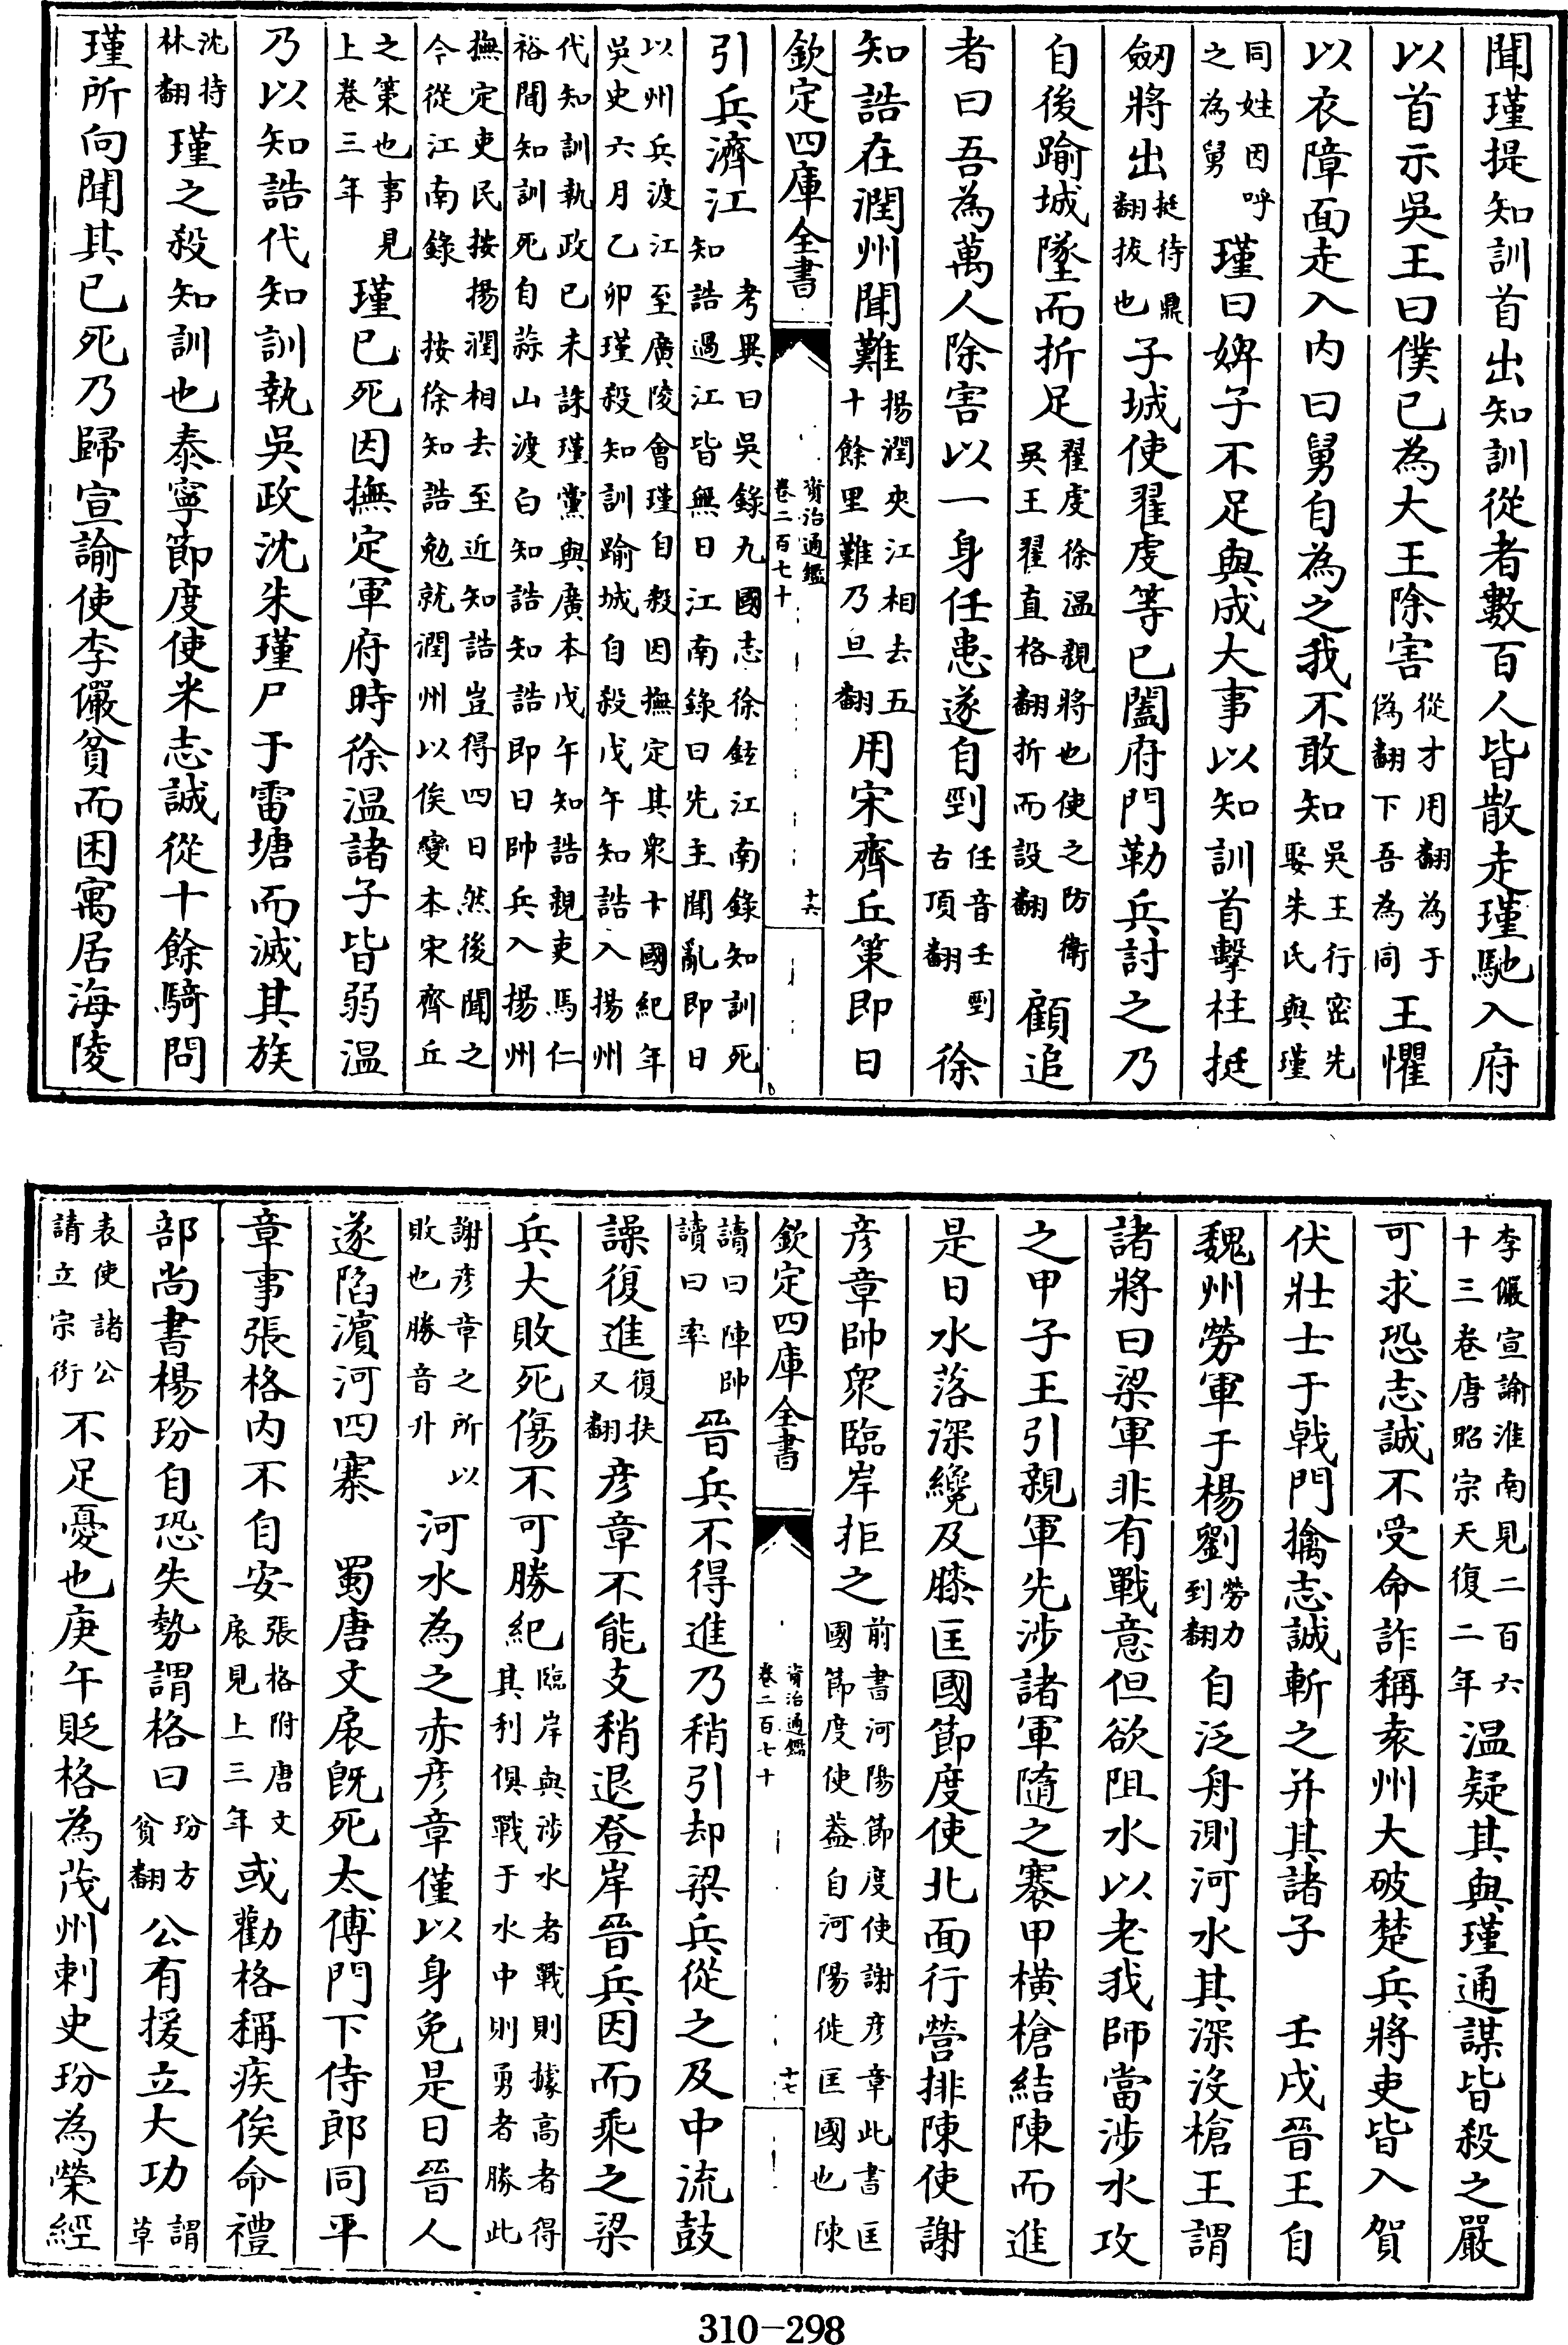 聞瑾提知訓首出知訓從者數百人皆散走瑾馳入府
以首示吳王曰僕已為大王除害從才用翻為于偽翻下吾為同王懼
以衣障面走入内曰舅自為之我不敢知吳王行密先娶朱氏與瑾
同姓因呼之為舅瑾曰婢子不足與成大事以知訓首擊柱挺
劒將出挺待鼎翻拔也子城使翟虔等已闔府門勒兵討之乃
自後踰城墜而折足翟虔徐温親將也使之防衛吳王翟直格翻折而設翻顧追
者曰吾為萬人除害以一身任患遂自剄任音壬剄古頂翻徐
知誥在潤州聞難揚潤夾江相去五十餘里難乃旦翻用宋齊丘策即日
欽定四庫全書
資治通鑑卷二百七十
十六
引兵濟江考異曰吳錄九國志徐鉉江南錄知訓死知誥過江皆無日江南錄曰先主聞亂即日
以州兵渡江至廣陵會瑾自殺因撫定其衆十國紀年吳史六月乙卯瑾殺知訓踰城自殺戊午知誥入揚州
代知訓執政己未誅瑾黨與廣本戊午知誥親吏馬仁裕聞知訓死自蒜山渡白知誥知誥即日帥兵入揚州
撫定吏民按揚潤相去至近知誥豈得四日然後聞之今從江南錄按徐知誥勉就潤州以俟變本宋齊丘
之策也事見上卷三年瑾已死因撫定軍府時徐温諸子皆弱温
乃以知誥代知訓執吳政沈朱瑾尸于雷塘而滅其族
沈持林翻瑾之殺知訓也泰寧節度使米志誠從十餘騎問
瑾所向聞其已死乃歸宣諭使李儼貧而困寓居海陵
李儼宣諭淮南見二百六十三卷唐昭宗天復二年温疑其與瑾通謀皆殺之嚴
可求恐志誠不受命詐稱袁州大破楚兵將吏皆入賀
伏壯士于戟門擒志誠斬之并其諸子　壬戌晉王自
魏州勞軍于楊劉勞力到翻自泛舟測河水其深沒槍王謂
諸將曰梁軍非有戰意但欲阻水以老我師當涉水攻
之甲子王引親軍先涉諸軍隨之褰甲橫槍結陳而進
是日水落深纔及膝匡國節度使北面行營排陳使謝
彦章帥衆臨岸拒之前書河陽節度使謝彦章此書匡國節度使葢自河陽徙匡國也陳
欽定四庫全書
資治通鑑卷二百七十
十七
讀曰陣帥讀曰率晉兵不得進乃稍引却梁兵從之及中流鼓
譟復進復扶又翻彦章不能支稍退登岸晉兵因而乘之梁
兵大敗死傷不可勝紀臨岸與涉水者戰則據高者得其利俱戰于水中則勇者勝此
謝彦章之所以敗也勝音升河水為之赤彦章僅以身免是日晉人
遂陷濵河四寨　蜀唐文扆旣死太傅門下侍郎同平
章事張格内不自安張格附唐文扆見上三年或勸格稱疾俟命禮
部尚書楊玢自恐失勢謂格曰玢方貧翻公有援立大功謂草
表使諸公請立宗衍不足憂也庚午貶格為茂州刺史玢為榮經
310-298